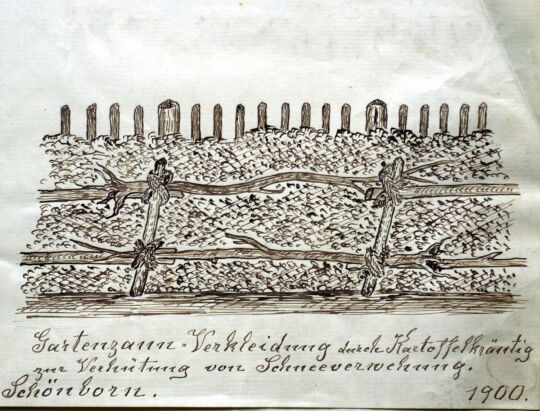 Gartenzaun-Verkleidung durch Kartoffelkräutig
zur Verhütung von Schneeverwehung.
Schönborn. 1900.